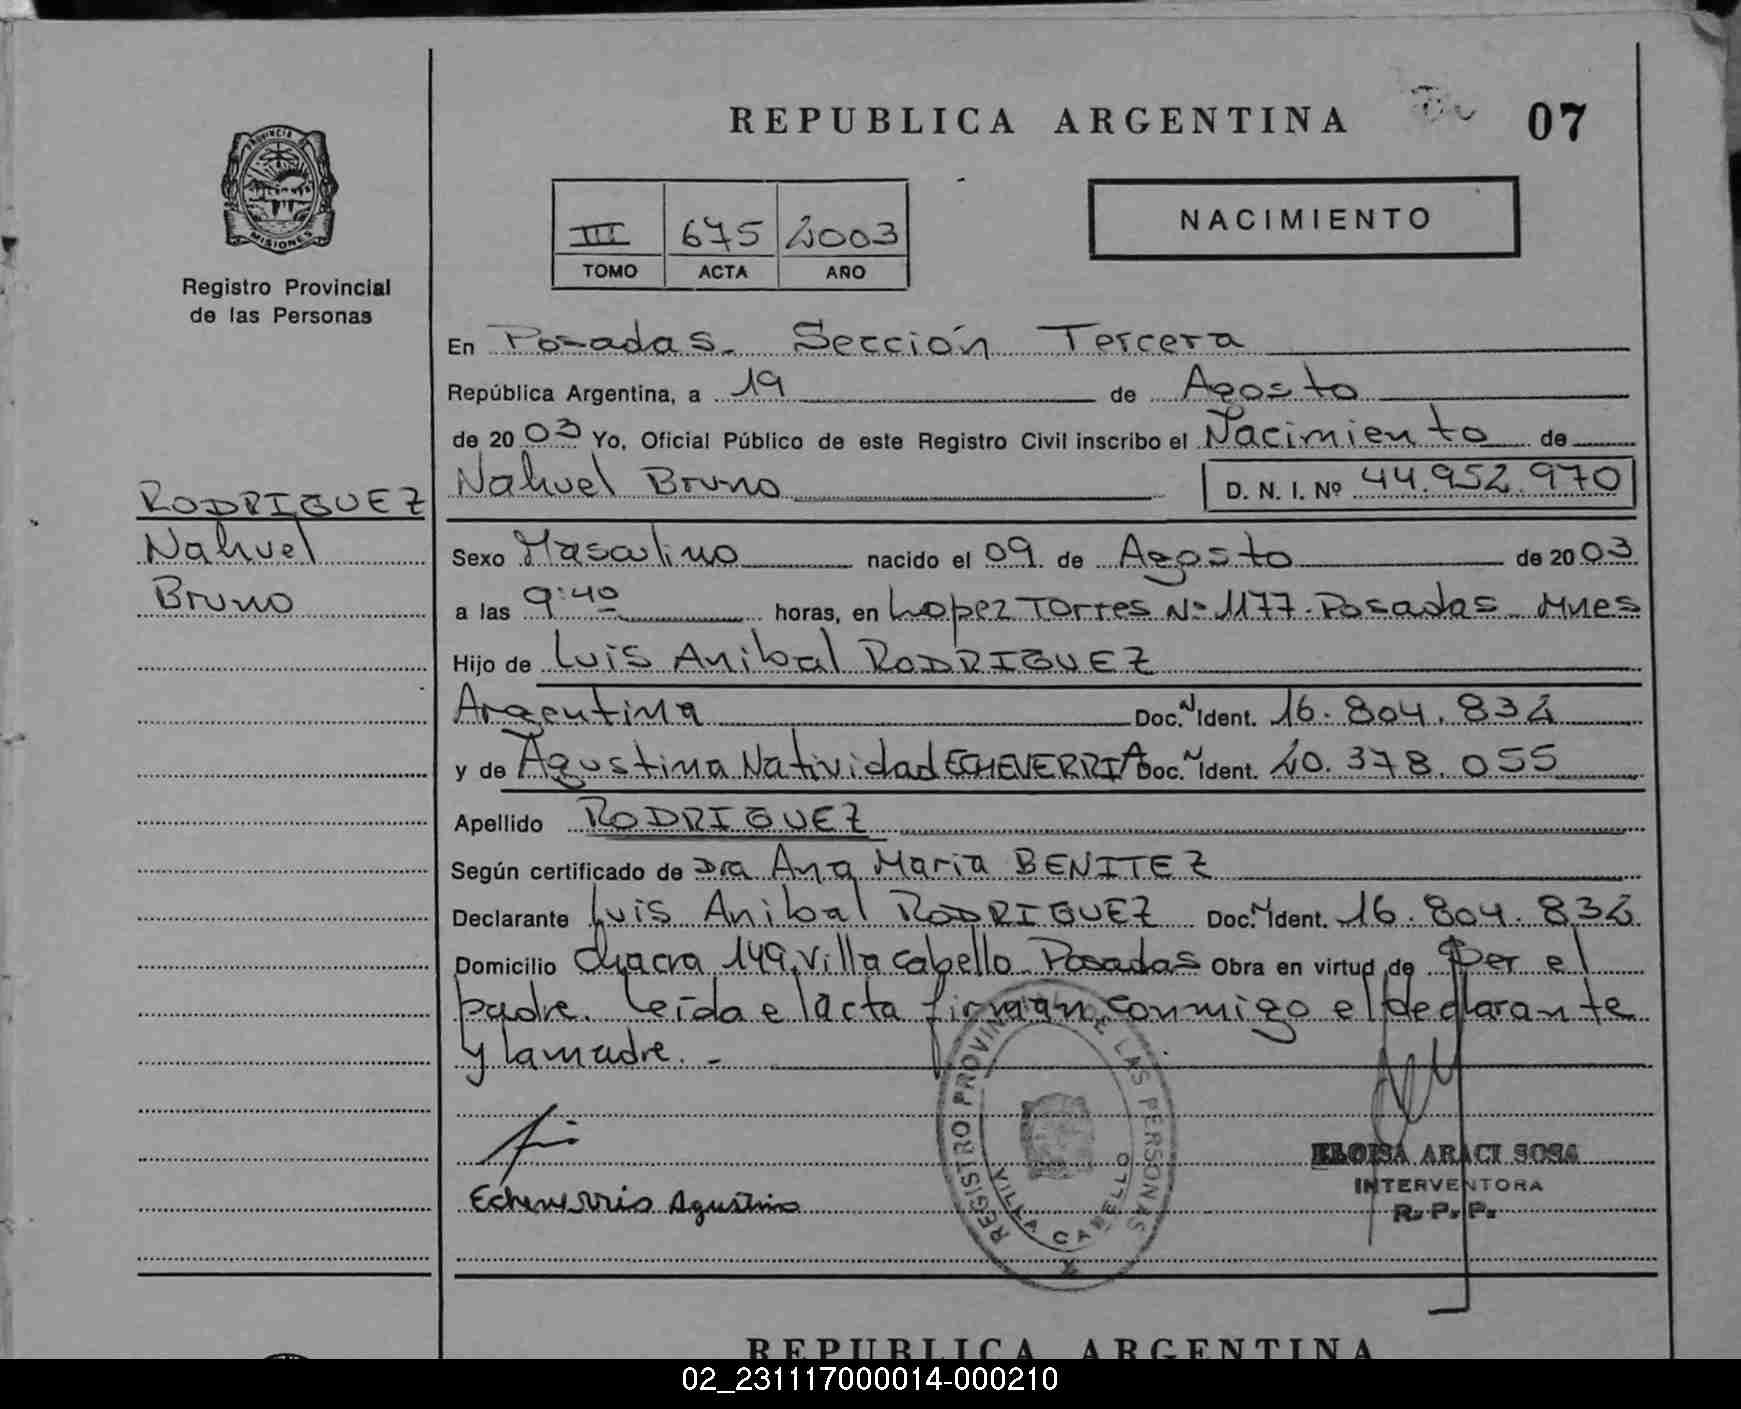 REPUBLICA ARGENTINA 07
PROVINCIA
MISIONES
Registro Provincial
de las Personas
III 675 2003
TOMO ACTA AÑO
NACIMIENTO
En Posadas. Sección Tercera
República Argentina, a 19 de Agosto
de 2003 Yo, Oficial Público de este Registro Civil inscribo el Nacimiento de
Nahuel Bruno D. N. I. Nº 44.952.970
RODRIGUEZ
Nahuel
Bruno
Sexo Masculino nacido el 09 de Agosto de 2003
a las 9:40 horas, en Lopez Torres Nº 1177. Posadas Mnes
Hijo de Luis Anibal RODRIGUEZ
Argentina Doc. N Ident. 16.804.832
y de Agustina Natividad ECHEVERRIA Doc. N Ident. 20.378.055
Apellido RODRIGUEZ
Según certificado de Dra Ana Maria BENITEZ
Declarante Luis Anibal RODRIGUEZ Doc. N Ident. 16.804.832
Domicilio Chacra 149. Villa Cabello Posadas Obra en virtud de Ser el
padre. Leída el acta firman conmigo el declarante
y la madre. -
REGISTRO PROVIN DE LAS PERSONAS
VILLA CABELLO
Echeverria Agustina
ELOISA ARACI SOSA
INTERVENTORA
R. P. P.
REPUBLICA ARGENTINA
02_231117000014-000210